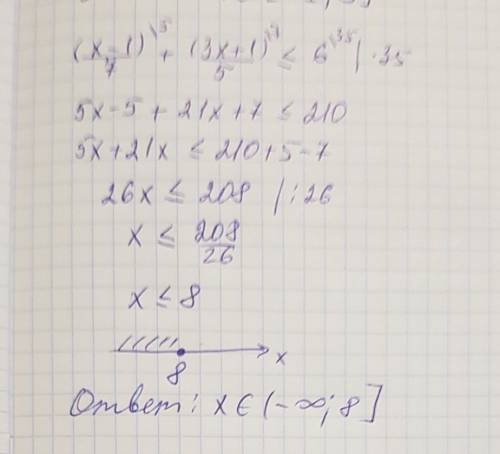 (x-1)/7 \5 + (3x+1)/5 \7 ≤ 6 \35 | ·35
5x-5 + 21x+7 ≤ 210
5x+21x ≤ 210+5-7
26x ≤ 208 | :26
x ≤ 208/26
x ≤ 8
8 x
Ответ: x ∈ (-∞; 8]